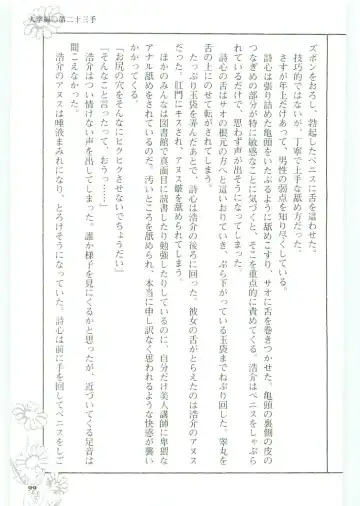 大学編◎第二十三手
ズボンをおろし、勃起したペニスに舌を這わせた。
技巧的ではないが、丁寧で上手な舐め方だった。
さすが年上だけあって、男性の弱点を知り尽くしている。
詩心は張り詰めた亀頭をいたぶるように舐めこすり、サオに舌を巻きつかせた。亀頭の裏側の皮の
つなぎめの部分が特に敏感なことに気づくと、そこを重点的に責めてくる。浩介はペニスをしゃぶら
れているだけで、思わず声が出そうになってしまった。
詩心の舌はサオの根元の方へと這いおりていき、ぶら下がっている玉袋までねぶり回した。睾丸を
舌の上にのせて転がされてしまう。
たっぷり玉袋を弄んだあとで、詩心は浩介の後ろに回った。彼女の舌がとらえたのは浩介のアヌス
だった。肛門にキスされ、アヌス皺を舐められてしまう。
ほかのみんなは図書館で真面目に読書したり勉強したりしているのに、自分だけ美人講師に卑猥な
アナル舐めをされているのだ。汚いところを舐められ、本当に申し訳なく思われるような快感が襲い
かかってくる。
「お尻の穴をそんなにヒクヒクさせないでちょうだい」
「そんなこと言ったって、おうっ……」
浩介はつい情けない声を出してしまった。誰か様子を見にくるかと思ったが、近づいてくる足音は
聞こえなかった。
浩介のアヌスは唾液まみれになり、とろけそうになっていた。詩心は前に手を回してペニスをしご
99